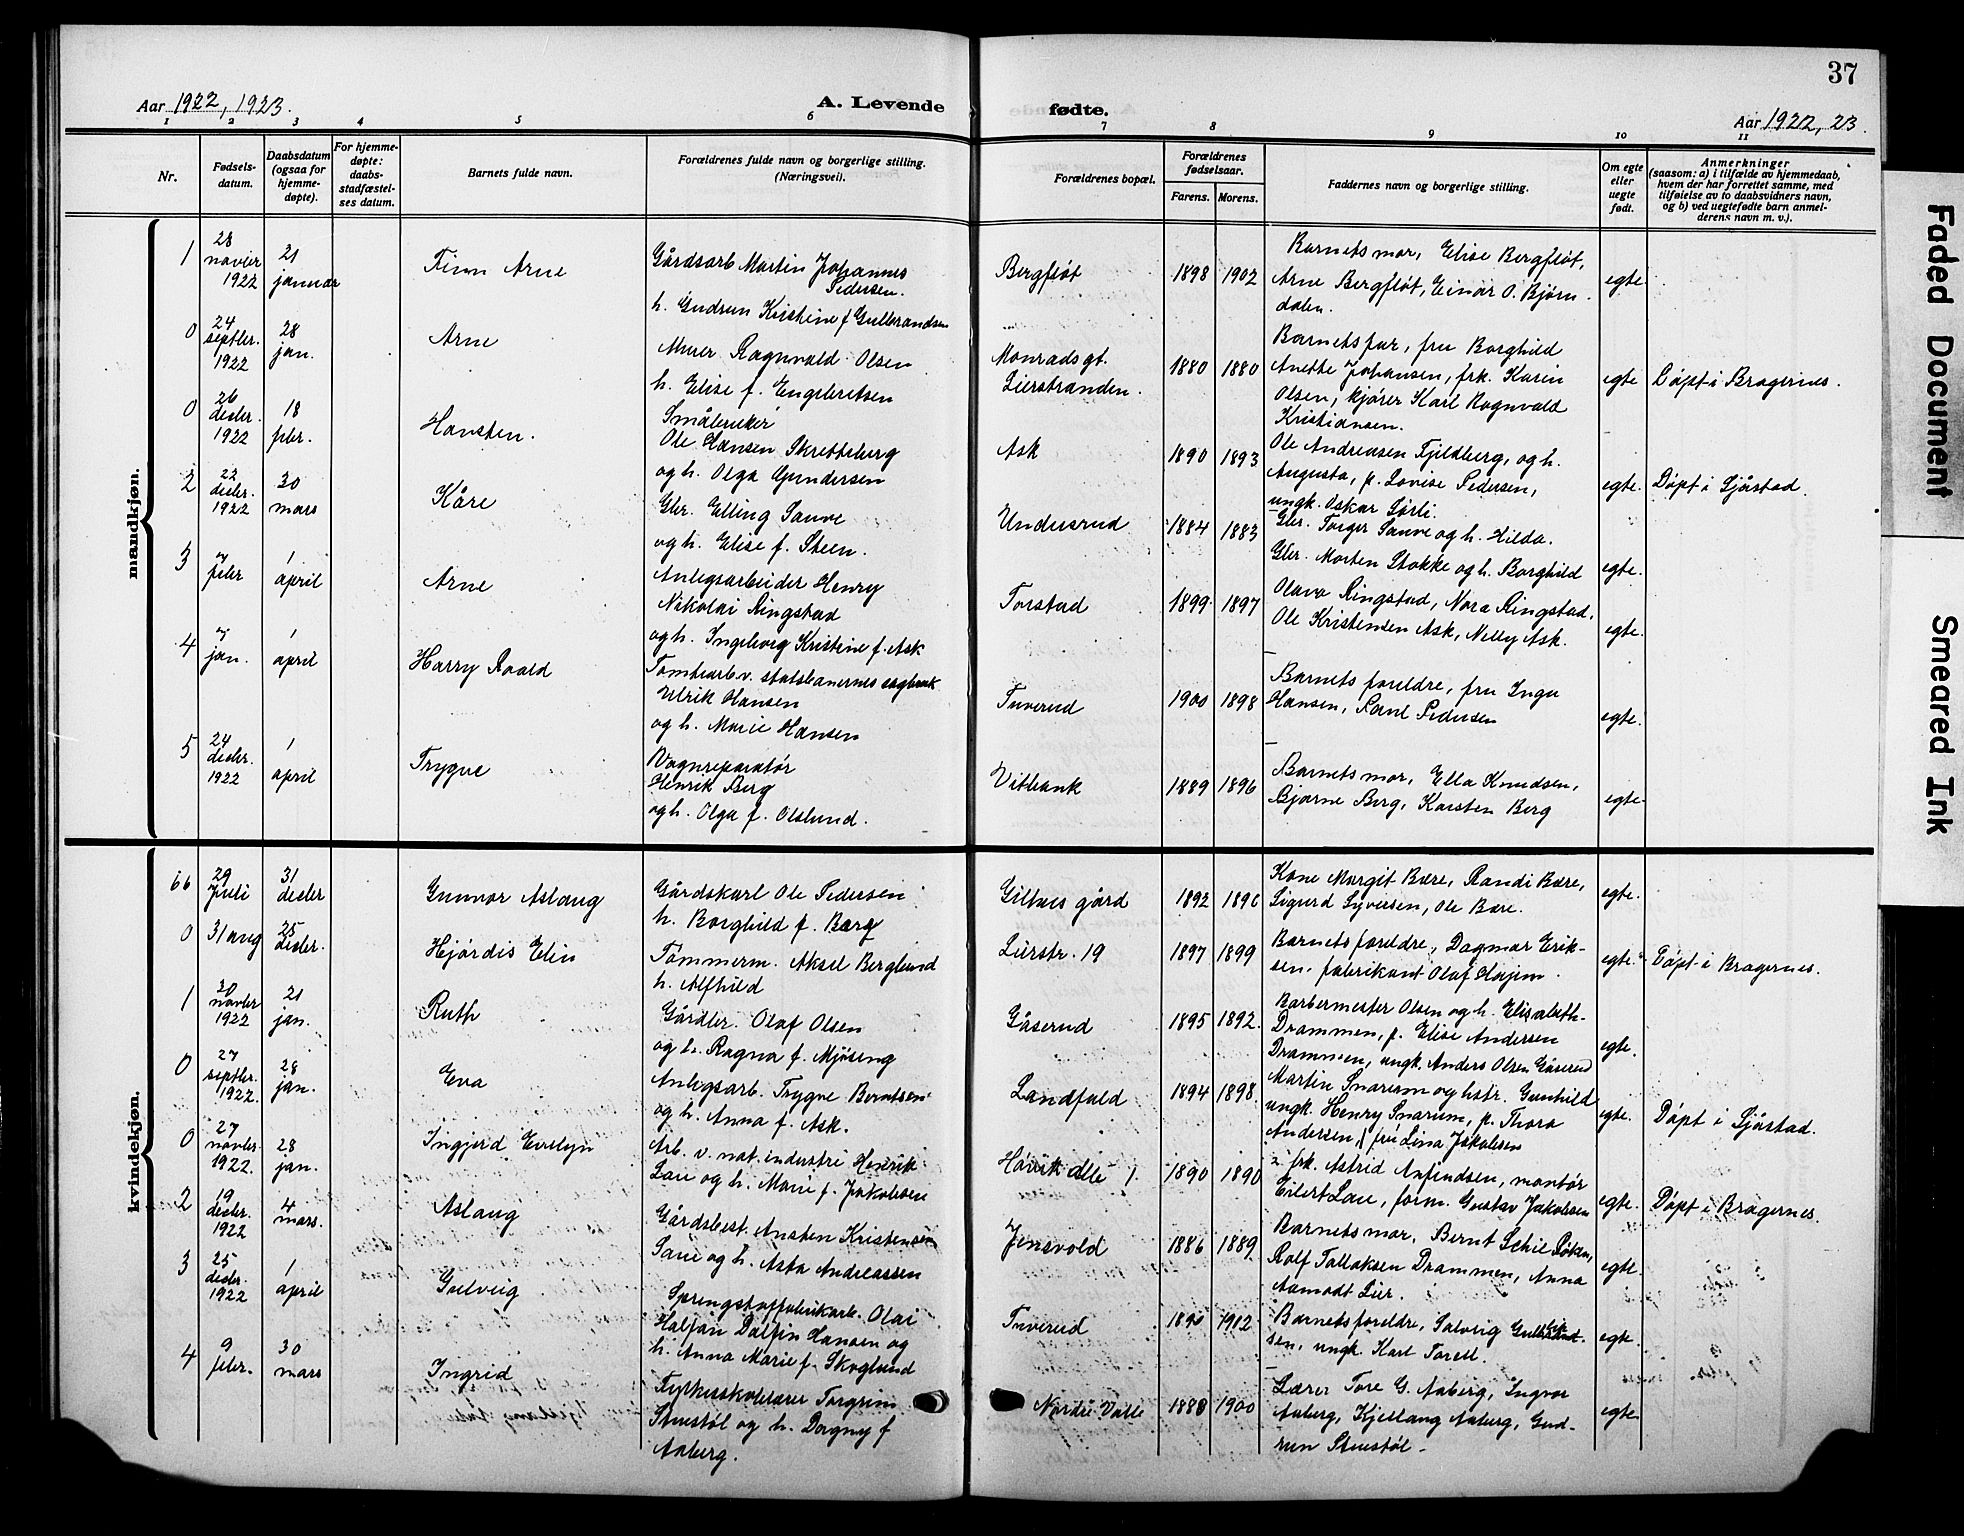 37
Aar 1922, 1923.
A. Levende
fødte.
Aar 1922, 23.
1 2 3 4 5 6 7 8 9 10 11
Nr.
Fødsels-
datum.
Daabsdatum
(ogsaa for
hjemme-
døpte).
For hjemme-
døpte:
daabs-
stadfæstel-
ses datum.
Barnets fulde navn.
Forældrenes fulde navn og borgerlige stilling.
(Næringsvei).
Forældrenes bopæl.
Forældrenes
fødselsaar.
Farens. Morens.
Faddernes navn og borgerlige stilling.
Om egte
eller
uegte
født.
Anmerkninger
(saasom: a) i tilfælde av hjemmedaab,
hvem der har forrettet samme, med
tilføielse av to daabsvidners navn,
og b) ved uegtefødte barn anmel-
derens navn m. v.).
mandkjøn.
1
28
novber
1922
21
januar
Finn Arne
Gårdsarb Martin Johannes
Pedersen.
h. Gudrun Kristine f Gulbrandsen
Bergfløt
1898 1902
Barnets mor, Elise Bergfløt,
Arne Bergfløt, Einar O. Bjørn
dalen.
egte
0
24
septbr.
1922
28
jan.
Arne
Murer Ragnvald Olsen
h. Elise f. Engebretsen
Monradsgt.
Lierstranden.
1880 1880
Barnets far, fru Borghild
Anette Johansen, frk. Karin
Olsen, kjører Karl Ragnvald
Kristiansen.
egte
Døpt i Bragernes.
0
26
desbr.
1922
18
febr.
Hansten.
Småbruker
Ole Hansen Skretteberg
og h. Olga Gundersen
Ask
1890 1893
Ole Andreasen Fjeldberg, og h.
Augusta, p. Lovise Pedersen,
ungk. Oskar Sørli.
egte.
Døpt i Sjåstad.
2
22
desbr.
1922
30
mars
Kåre
Gbr. Elling Sauve
og h. Elise f. Steen.
Undersrud
1884 1883
Gbr. Torger Sauve og h. Hilda.
Gbr. Morten Stokke og h. Borghild
egte.
3
7
febr
1
april
Arne
Anlegsarbeider Henry
Nikolai Ringstad
og h. Ingeborg Kristine f. Ask
Torstad
1899 1897
Olava Ringstad, Nora Ringstad,
Ole Kristensen Ask, Nelly Ask.
egte.
4
7
jan.
1
april
Harry Roald
Tomtearb v. statsbanernes sagbruk
Ulrik Hansen
og h. Marie Hansen
Tuverud
1900 1898
Barnets foreldre, fru Inga
Hansen, Paul Pedersen
egte.
5
24
desbr.
1922
1
april
Trygve
Vognreparatør
Henrik Berg
og h. Olga f. Olslund.
Vitbank
1889 1896
Barnets mor, Ella Knudsen,
Bjarne Berg, Karsten Berg
egte.
kvindekjøn.
66
29
Juli
31
desbr
Gunvor Aslaug
Gårdskarl Ole Pedersen
h. Borghild f. Berg
Gilhus gård
1892 1896
Kone Margit Bære, Randi Bære,
Sigurd Syversen, Ole Bære.
egte.
0
31 aug
25
desbr.
Hjørdis Elin
Tømmerm. Aksel Berglund
h. Alfhild
Lierstr. 19
1897 1899
Barnets foreldre, Dagmar Erik-
sen, fabrikant Olaf
egte.
Døpt i Bragernes.
1
20
novber
1922
21
jan.
Ruth
Gårdbr. Olaf Olsen
og h. Ragna f. Mjøseng
Gåserud
1895 1892.
Barbermester Olsen og h. Elisabeth-
Drammen, p. Elise Andersen
Drammen, ungk. Anders Olsen Gåserud
egte.
0
27
septbr.
1922.
28
jan.
Eva
Anlegsarb. Trygve Berntsen
og h. Anna f. Ask.
Landfald
1894 1898
Martin Snarum og hstr. Gunhild
ungk. Henry Snarum, p. Thora
Andersen,
egte.
Døpt i Sjåstad.
0
27
novbr.
1922.
28
jan.
Ingjerd Evelyn
Arb. v. nat. industri Henrik
Lae og h. Marie f. Jakobsen
1890 1890
fru Lina Jakobsen
frk. Astrid Anfindsen, montør
Eilert Lae, form. Gustav Jakobsen
egte.
Døpt i Bragernes.
2
19
desbr.
1922
4
mars.
Aslaug
Gårdsbest. Ansten Kristensen
og h. Asta Andreassen
Jensvold
1886 1889
Barnets mor, Bernt Schie Røken,
Rolf Tollaksen Drammen, Anna
Aamodt Lier.
egte.
3
25
desbr.
1922
1
april
Gulveig
Sprengstoffabrikarb. Olai
Halfdan Dalfin Hansen og
h. Anna Marie f. Skoglund
Tuverud
1902
Barnets foreldre, Solveig
sen, ungk. Karl Torell.
egte.
4
9
febr.
30
mars
Ingrid
Fylkesskolelærer Torgrim
Stuestøl og h. Dagny f
Aaberg.
Nordre Valle
1888 1900
Lærer Tore G. Aaberg, Ingvor
Aaberg, Kjellaug Aaberg, Gud-
run Stuestøl.
egte
Faded Document
Smeared Ink